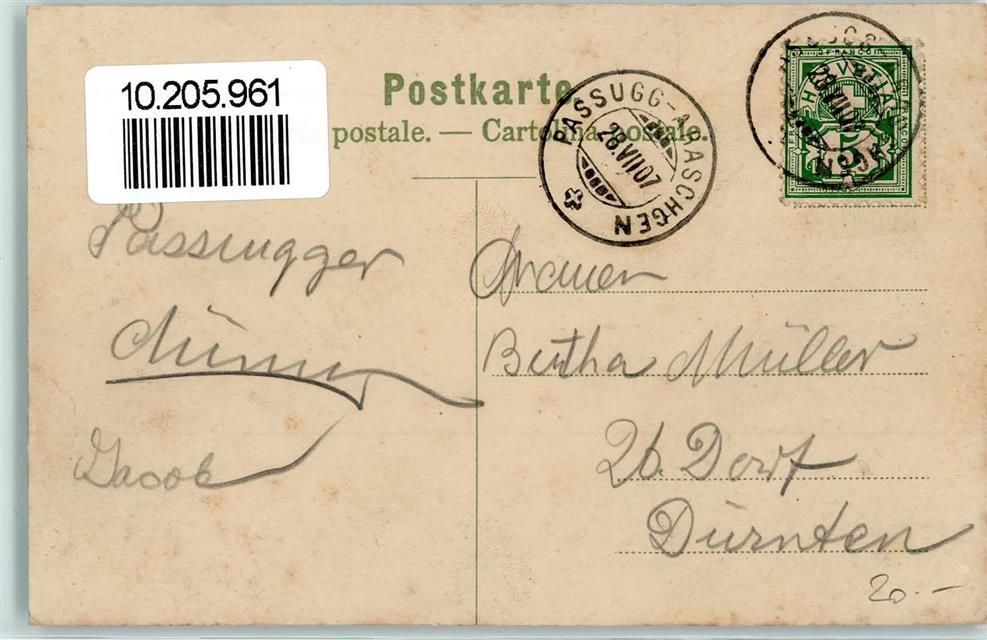 10.205.961
Postkarte
postale. — Cartolina postale.
PASSUGG-ARASCHGEN
28 VII 07
HELVETIA
FRANCO
5
Passugger
Jacob
Bertha Müller
Zb. Dorf
Dürnten
20.-